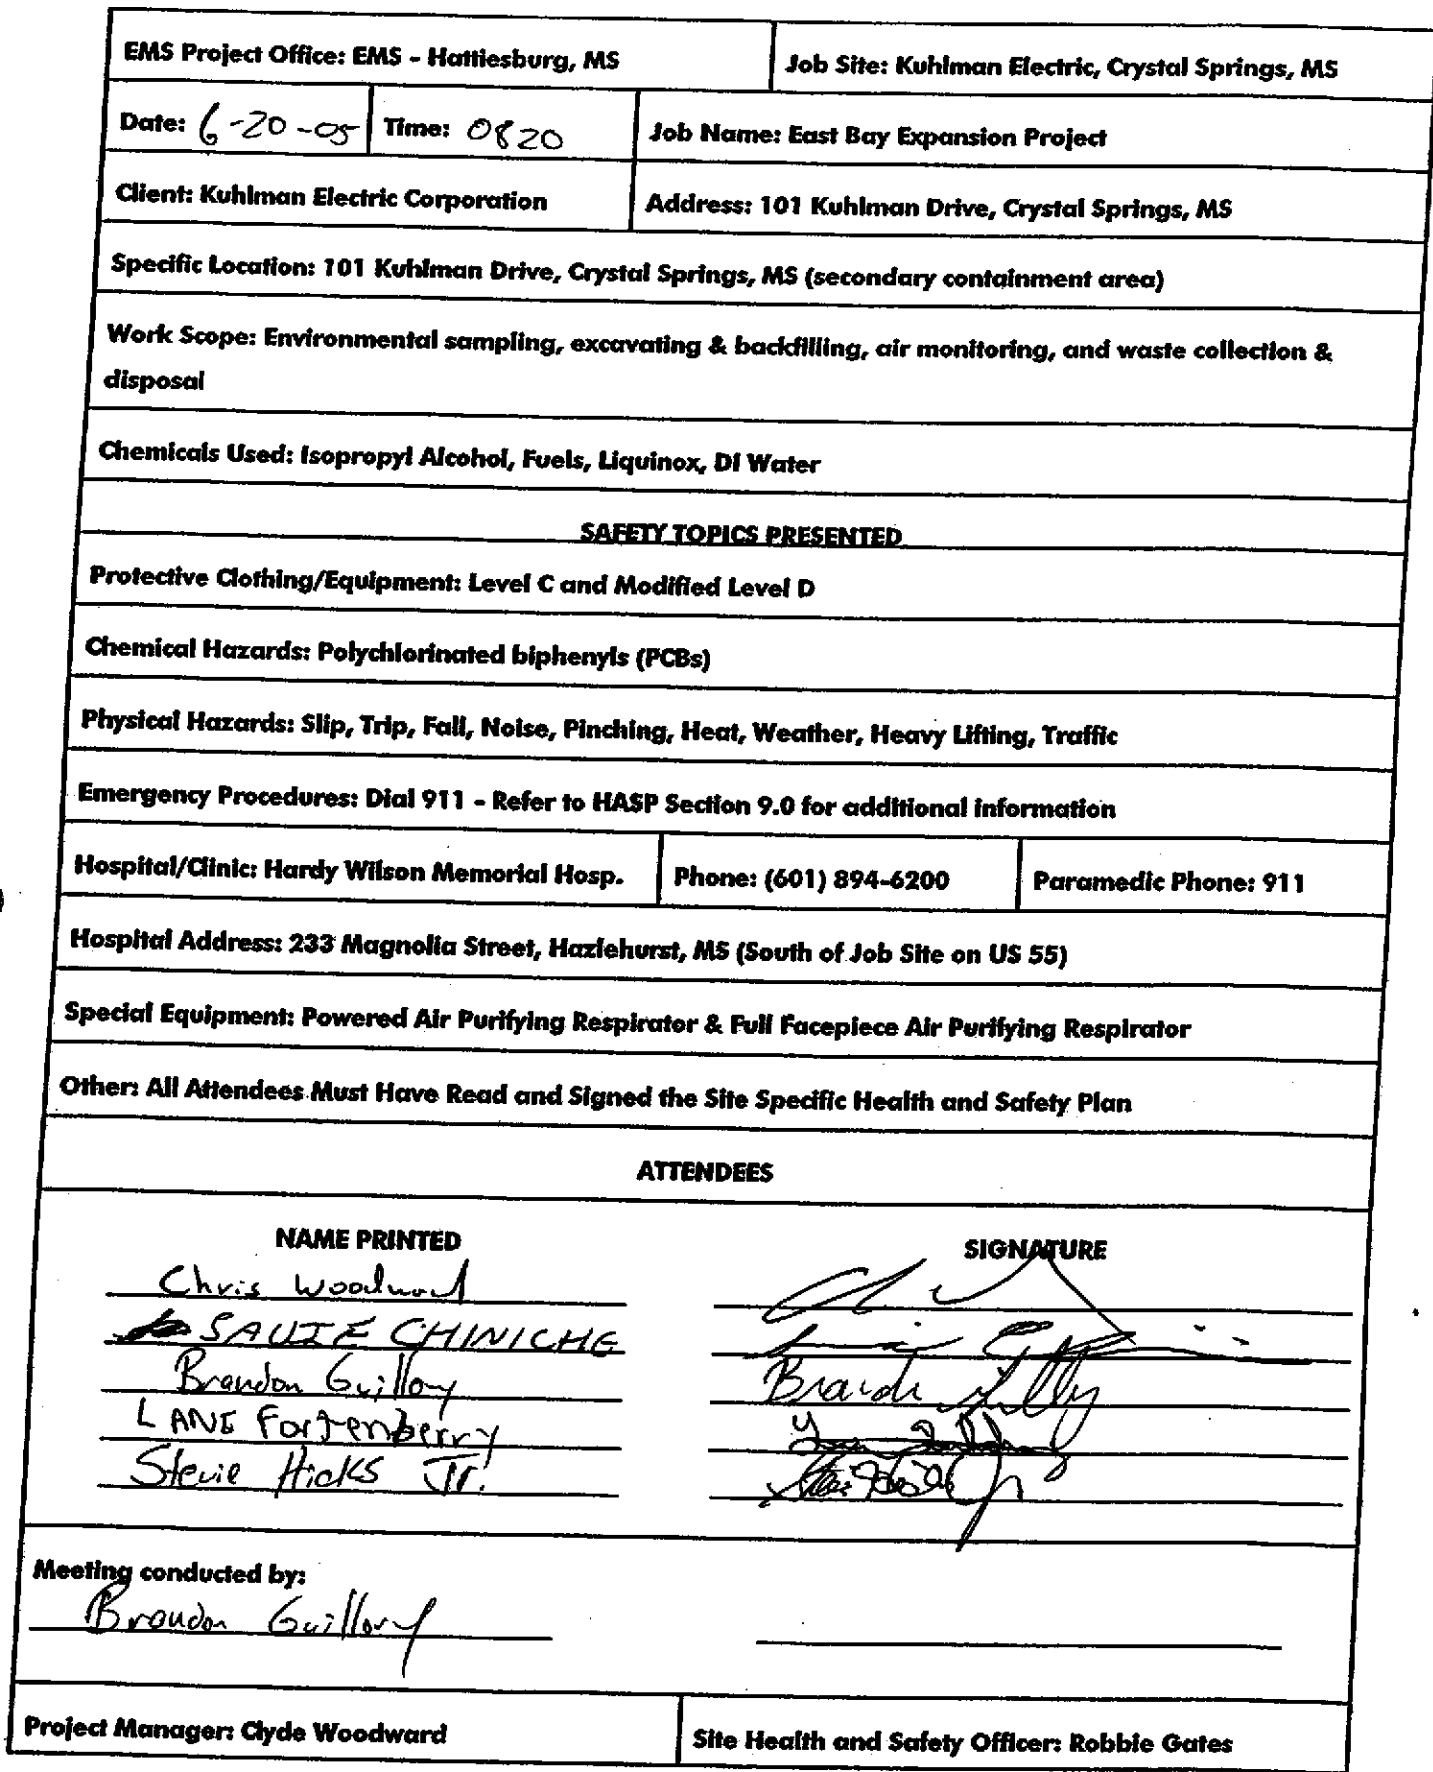 EMS Project Office: EMS - Hattiesburg, MS
Job Site: Kuhlman Electric, Crystal Springs, MS
Date: 6-20-05
Time: 0820
Job Name: East Bay Expansion Project
Client: Kuhlman Electric Corporation
Address: 101 Kuhlman Drive, Crystal Springs, MS
Specific Location: 101 Kuhlman Drive, Crystal Springs, MS (secondary containment area)
Work Scope: Environmental sampling, excavating & backfilling, air monitoring, and waste collection &
disposal
Chemicals Used: Isopropyl Alcohol, Fuels, Liquinox, DI Water
SAFETY TOPICS PRESENTED
Protective Clothing/Equipment: Level C and Modified Level D
Chemical Hazards: Polychlorinated biphenyls (PCBs)
Physical Hazards: Slip, Trip, Fall, Noise, Pinching, Heat, Weather, Heavy Lifting, Traffic
Emergency Procedures: Dial 911 - Refer to HASP Section 9.0 for additional information
Hospital/Clinic: Hardy Wilson Memorial Hosp.
Phone: (601) 894-6200
Paramedic Phone: 911
Hospital Address: 233 Magnolia Street, Hazlehurst, MS (South of Job Site on US 55)
Special Equipment: Powered Air Purifying Respirator & Full Facepiece Air Purifying Respirator
Other: All Attendees Must Have Read and Signed the Site Specific Health and Safety Plan
ATTENDEES
NAME PRINTED
SIGNATURE
Chris Woodward
CHINICHE
Brandon Guillory
LANE Fortenberry
Stevie Hicks Jr.
Meeting conducted by:
Brandon Guillory
Project Manager: Clyde Woodward
Site Health and Safety Officer: Robbie Gates